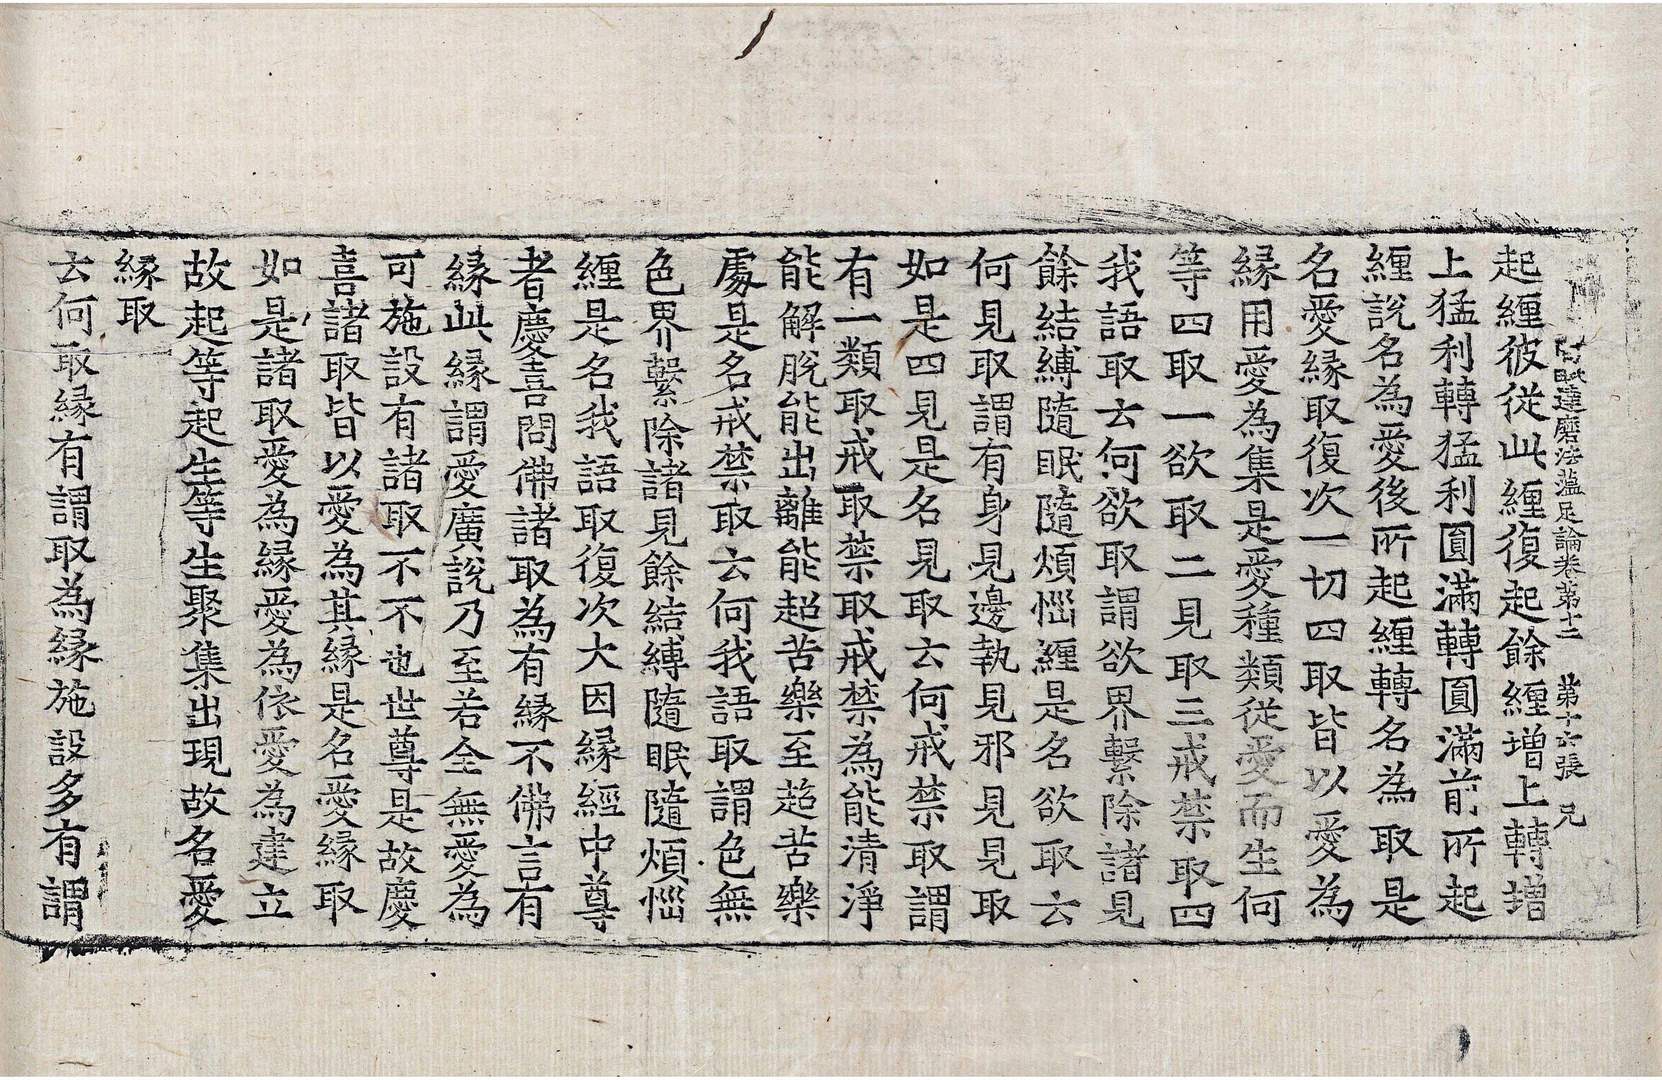 阿毗達磨法蘊足論卷第十二 第十六張 兄
起纏彼從此纏復起餘纏增上轉增
上猛利轉猛利圓滿轉圓滿前所起
纏說名為愛後所起纏轉名為取是
名愛緣取復次一切四取皆以愛為
緣用愛為集是愛種類從愛而生何
等四取一欲取二見取三戒禁取四
我語取云何欲取謂欲界繫除諸見
餘結縛隨眠隨煩惱纏是名欲取云
何見取謂有身見邊執見邪見見取
如是四見是名見取云何戒禁取謂
有一類取戒取禁取戒禁為能清淨
能解脫能出離能超苦樂至超苦樂
處是名戒禁取云何我語取謂色無
色界繫除諸見餘結縛隨眠隨煩惱
纏是名我語取復次大因緣經中尊
者慶喜問佛諸取為有緣不佛言有
緣此緣謂愛廣說乃至若全無愛為
可施設有諸取不不也世尊是故慶
喜諸取皆以愛為其緣是名愛緣取
如是諸取愛為緣愛為依愛為建立
故起等起生等生聚集出現故名愛
緣取
云何取緣有謂取為緣施設多有謂